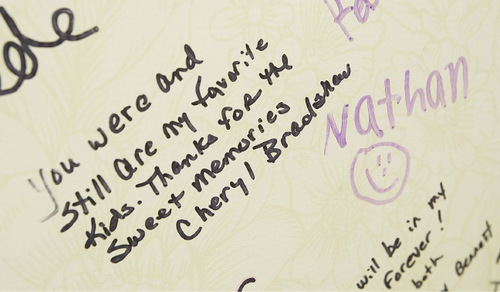 You were and
Still are my favorite
Kids. Thanks for the
Sweet memories
Cheryl Bradshaw
Nathan
will be in my
Forever!
both
Bennett